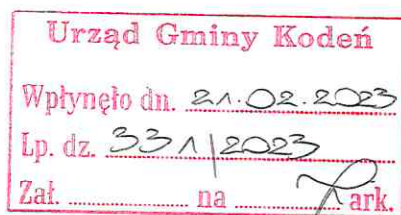 Urząd Gminy Kodeń
Wpłynęło dn. 21.02.2023
Lp. dz. 331/2023
Zał. ........... na ........... ark.